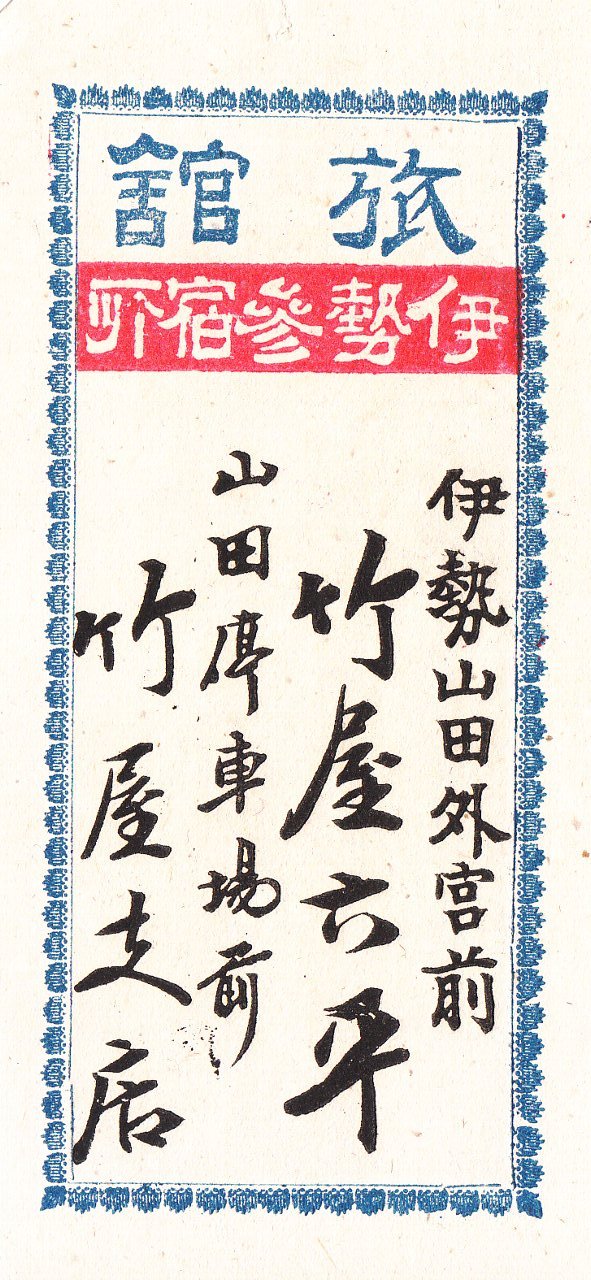 旅舘
伊勢參宿所
伊勢山田外宮前
竹屋六平
山田停車場前
竹屋支店